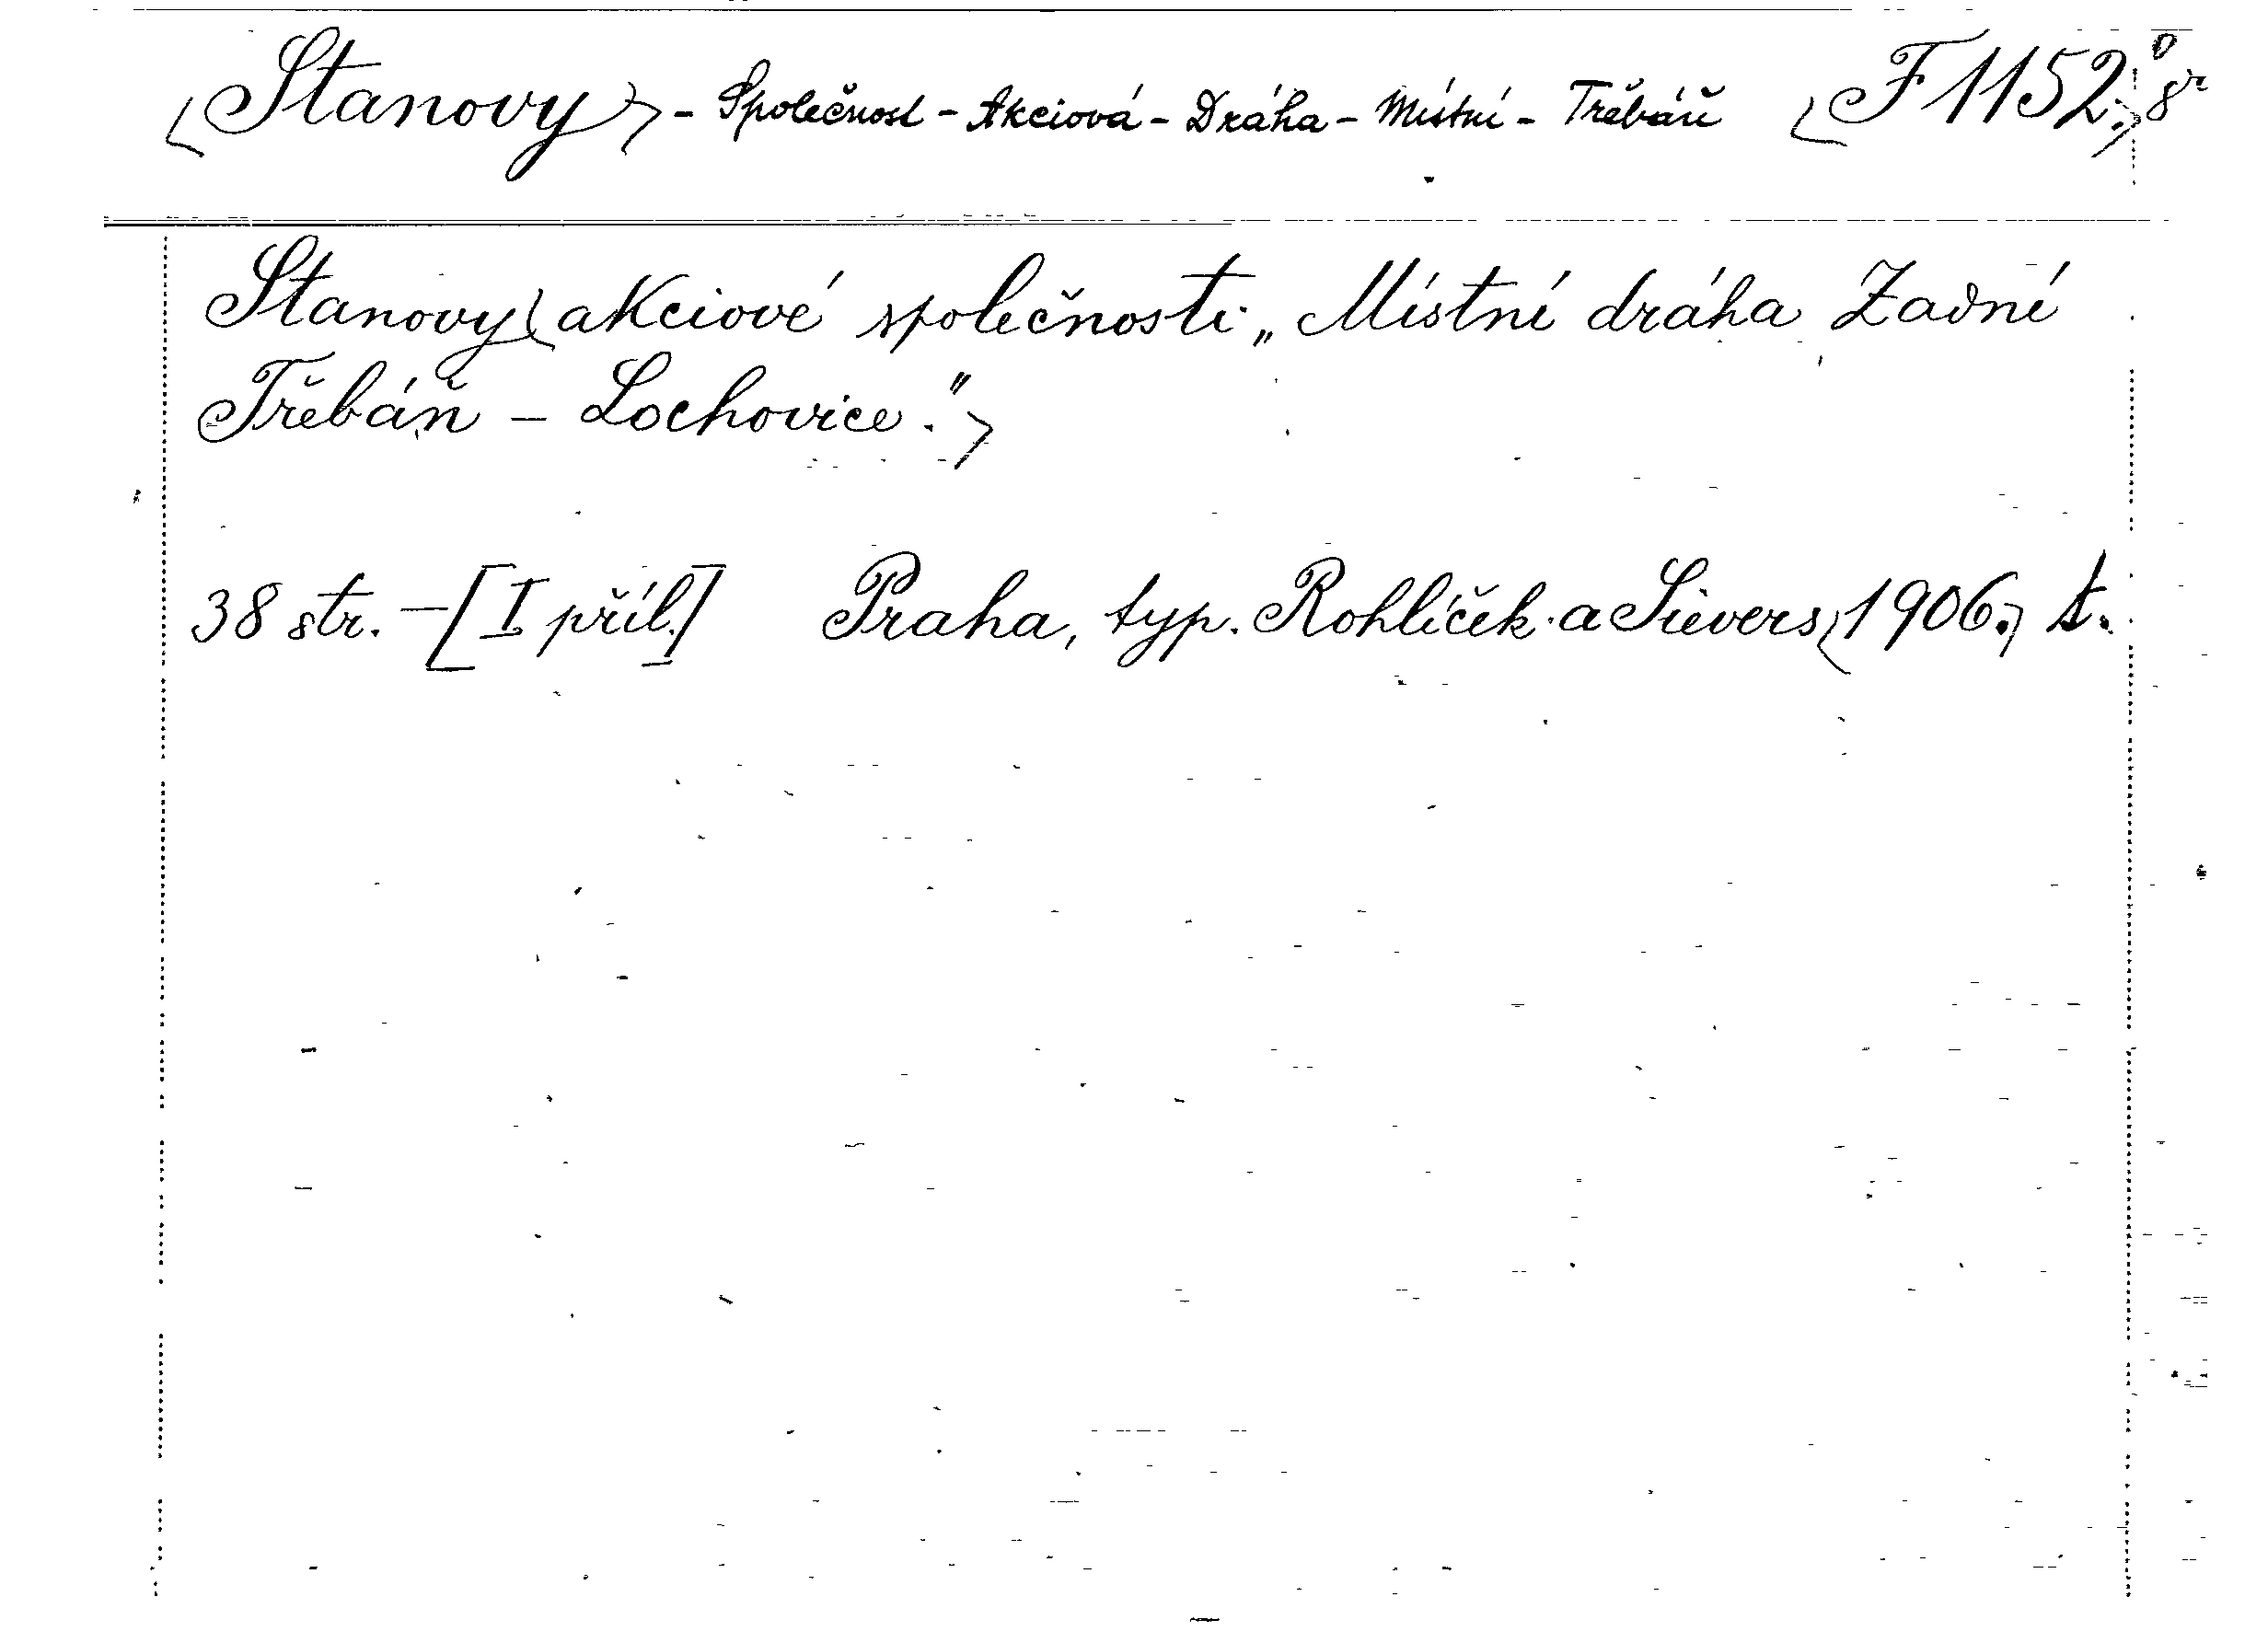 Stanovy - Společnost - Akciová - Dráha - Místní - Třebáň F 1152. 8°
Stanovy akciové společnosti „Místní dráha Zadní
Třebáň - Lochovice."
38 str. - [I příl.] Praha, typ. Rohlíček a Sievers 1906. t.